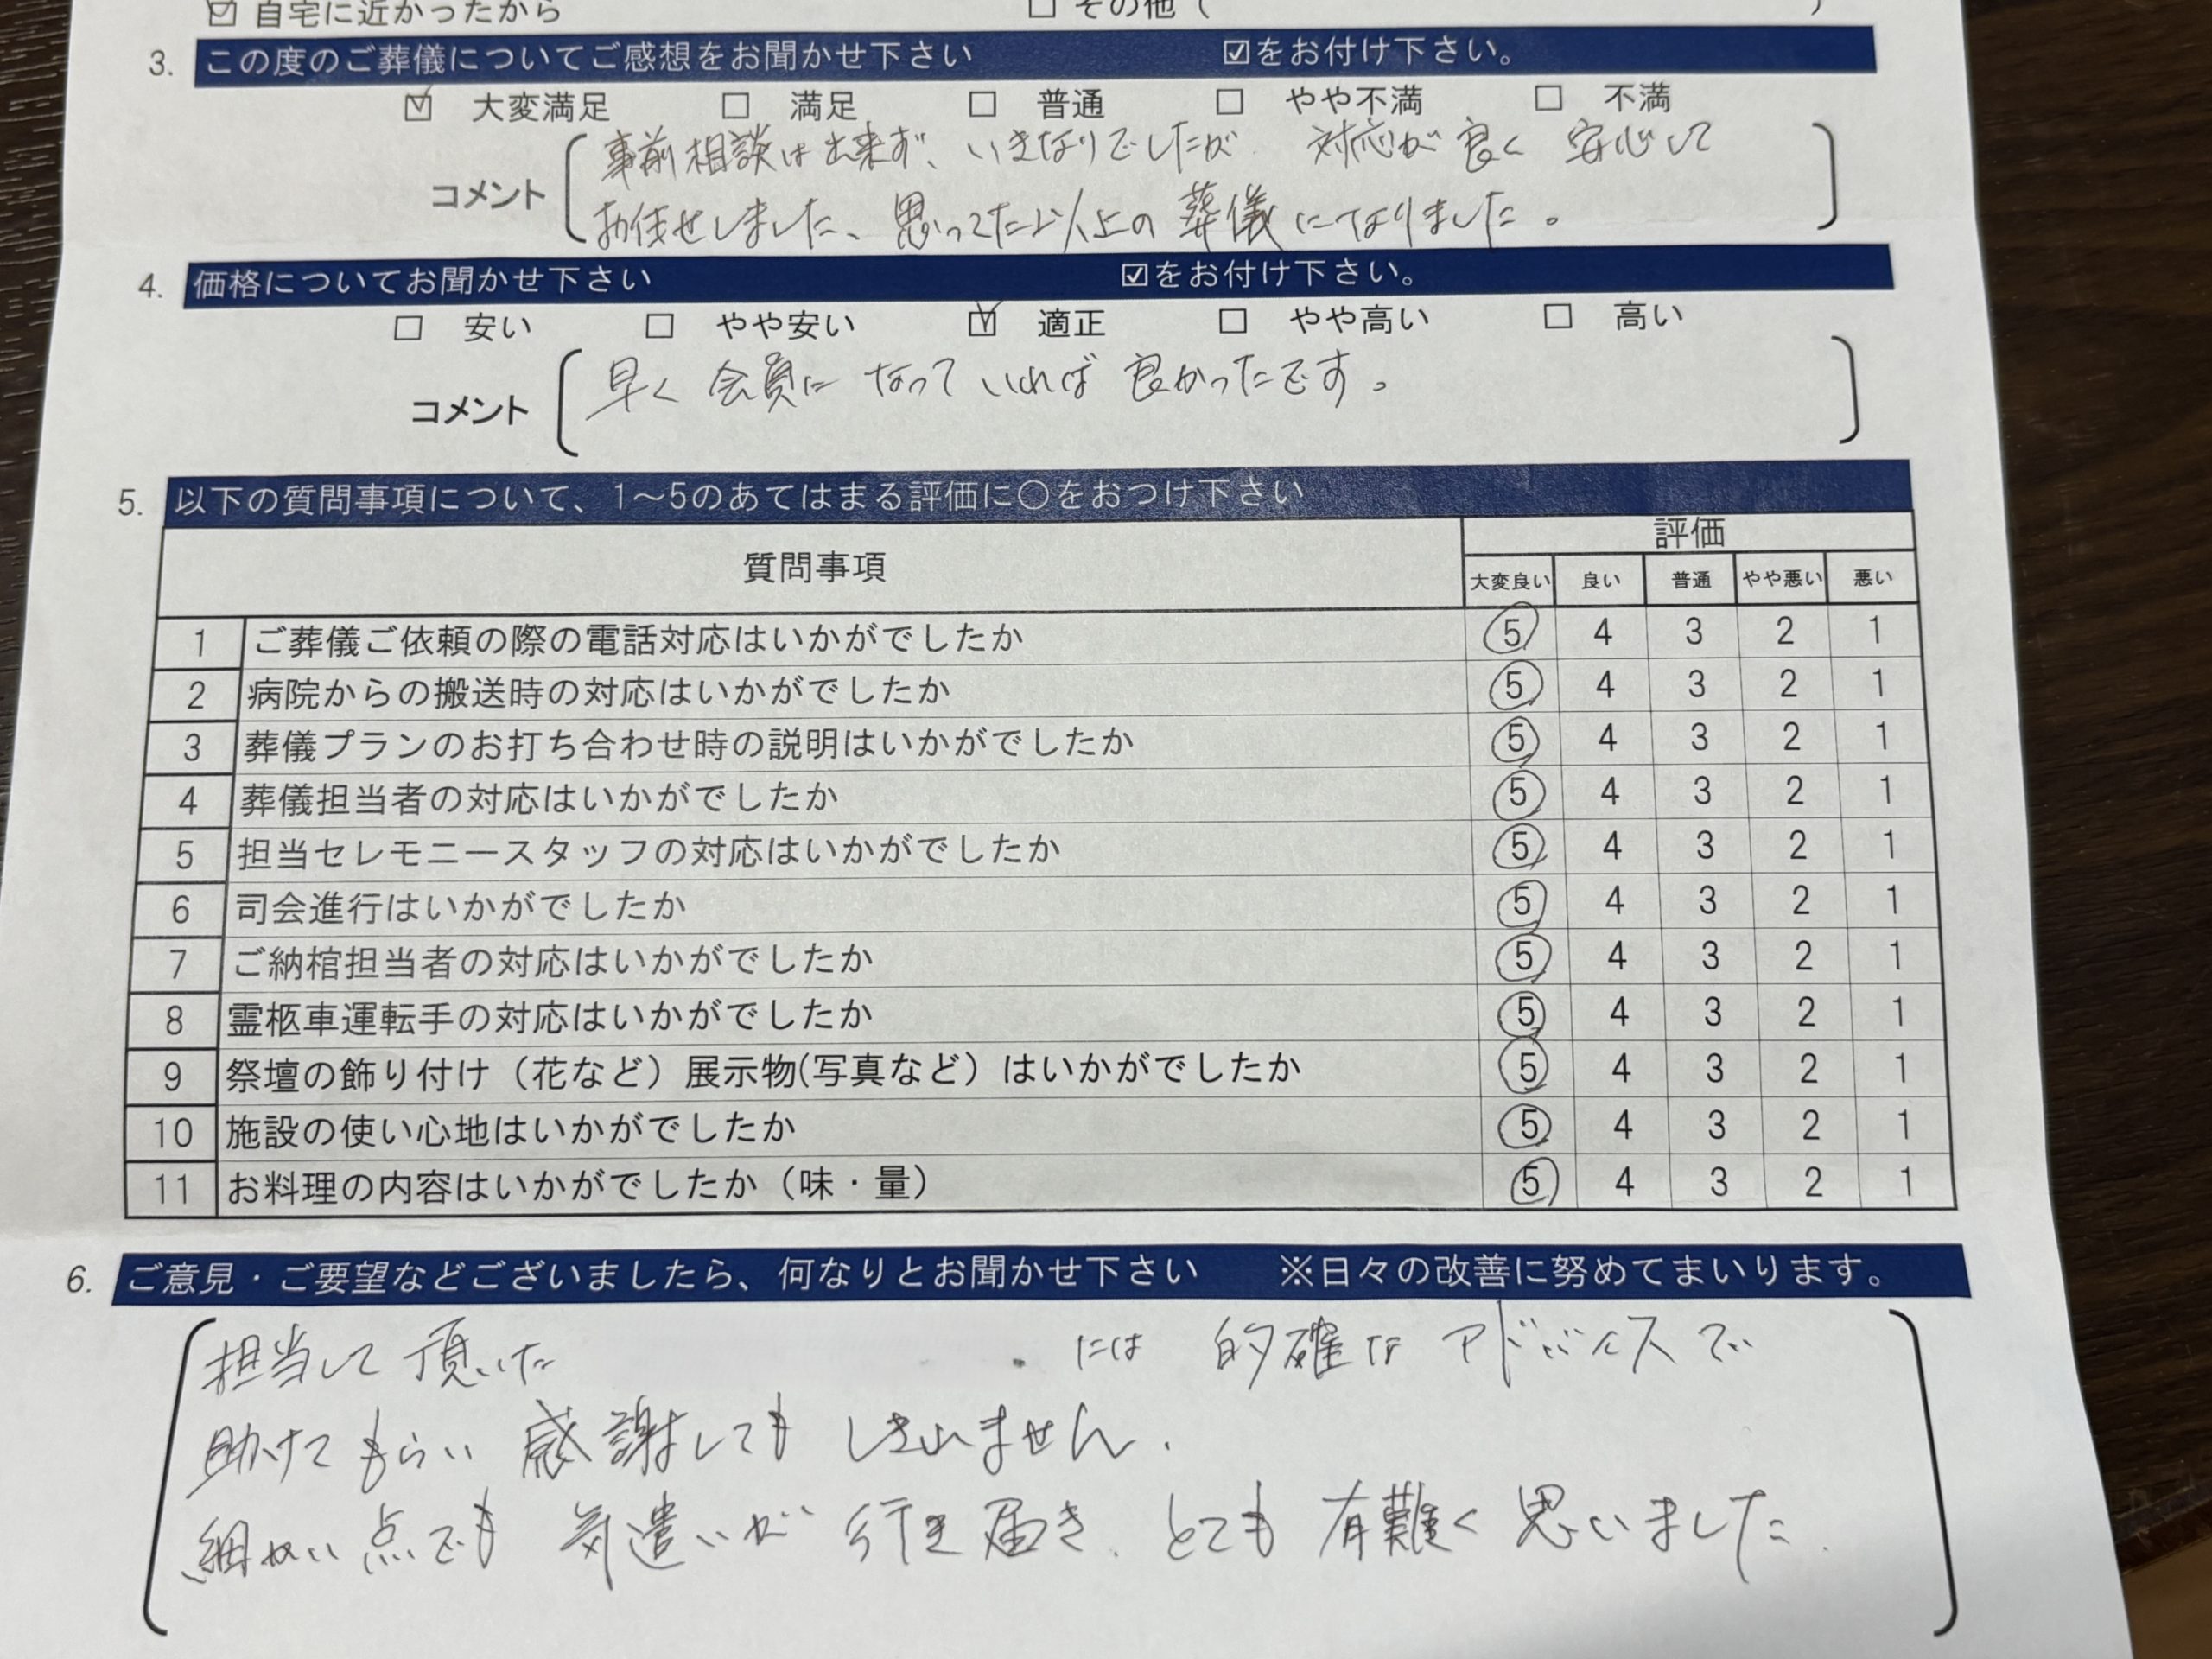 ☑ 自宅に近かったから □ その他（ ）
3. この度のご葬儀についてご感想をお聞かせ下さい ☑をお付け下さい。
☑ 大変満足 □ 満足 □ 普通 □ やや不満 □ 不満
コメント
事前相談は出来ず、いきなりでしたが 対応が良く 安心して
お任せしました、思ってた以上の葬儀になりました。
4. 価格についてお聞かせ下さい ☑をお付け下さい。
□ 安い □ やや安い ☑ 適正 □ やや高い □ 高い
コメント 早く会員になっていれば良かったです。
5. 以下の質問事項について、1～5のあてはまる評価に〇をおつけ下さい
質問事項 評価
大変良い 良い 普通 やや悪い 悪い
1 ご葬儀ご依頼の際の電話対応はいかがでしたか 5 4 3 2 1
2 病院からの搬送時の対応はいかがでしたか 5 4 3 2 1
3 葬儀プランのお打ち合わせ時の説明はいかがでしたか 5 4 3 2 1
4 葬儀担当者の対応はいかがでしたか 5 4 3 2 1
5 担当セレモニースタッフの対応はいかがでしたか 5 4 3 2 1
6 司会進行はいかがでしたか 5 4 3 2 1
7 ご納棺担当者の対応はいかがでしたか 5 4 3 2 1
8 霊柩車運転手の対応はいかがでしたか 5 4 3 2 1
9 祭壇の飾り付け（花など）展示物(写真など）はいかがでしたか 5 4 3 2 1
10 施設の使い心地はいかがでしたか 5 4 3 2 1
11 お料理の内容はいかがでしたか（味・量） 5 4 3 2 1
6. ご意見・ご要望などございましたら、何なりとお聞かせ下さい ※日々の改善に努めてまいります。
担当して頂いた には 的確なアドバイスで
助けてもらい 感謝しても しきれません.
細かい点でも 気遣いが 行き届き、とても 有難く 思いました.